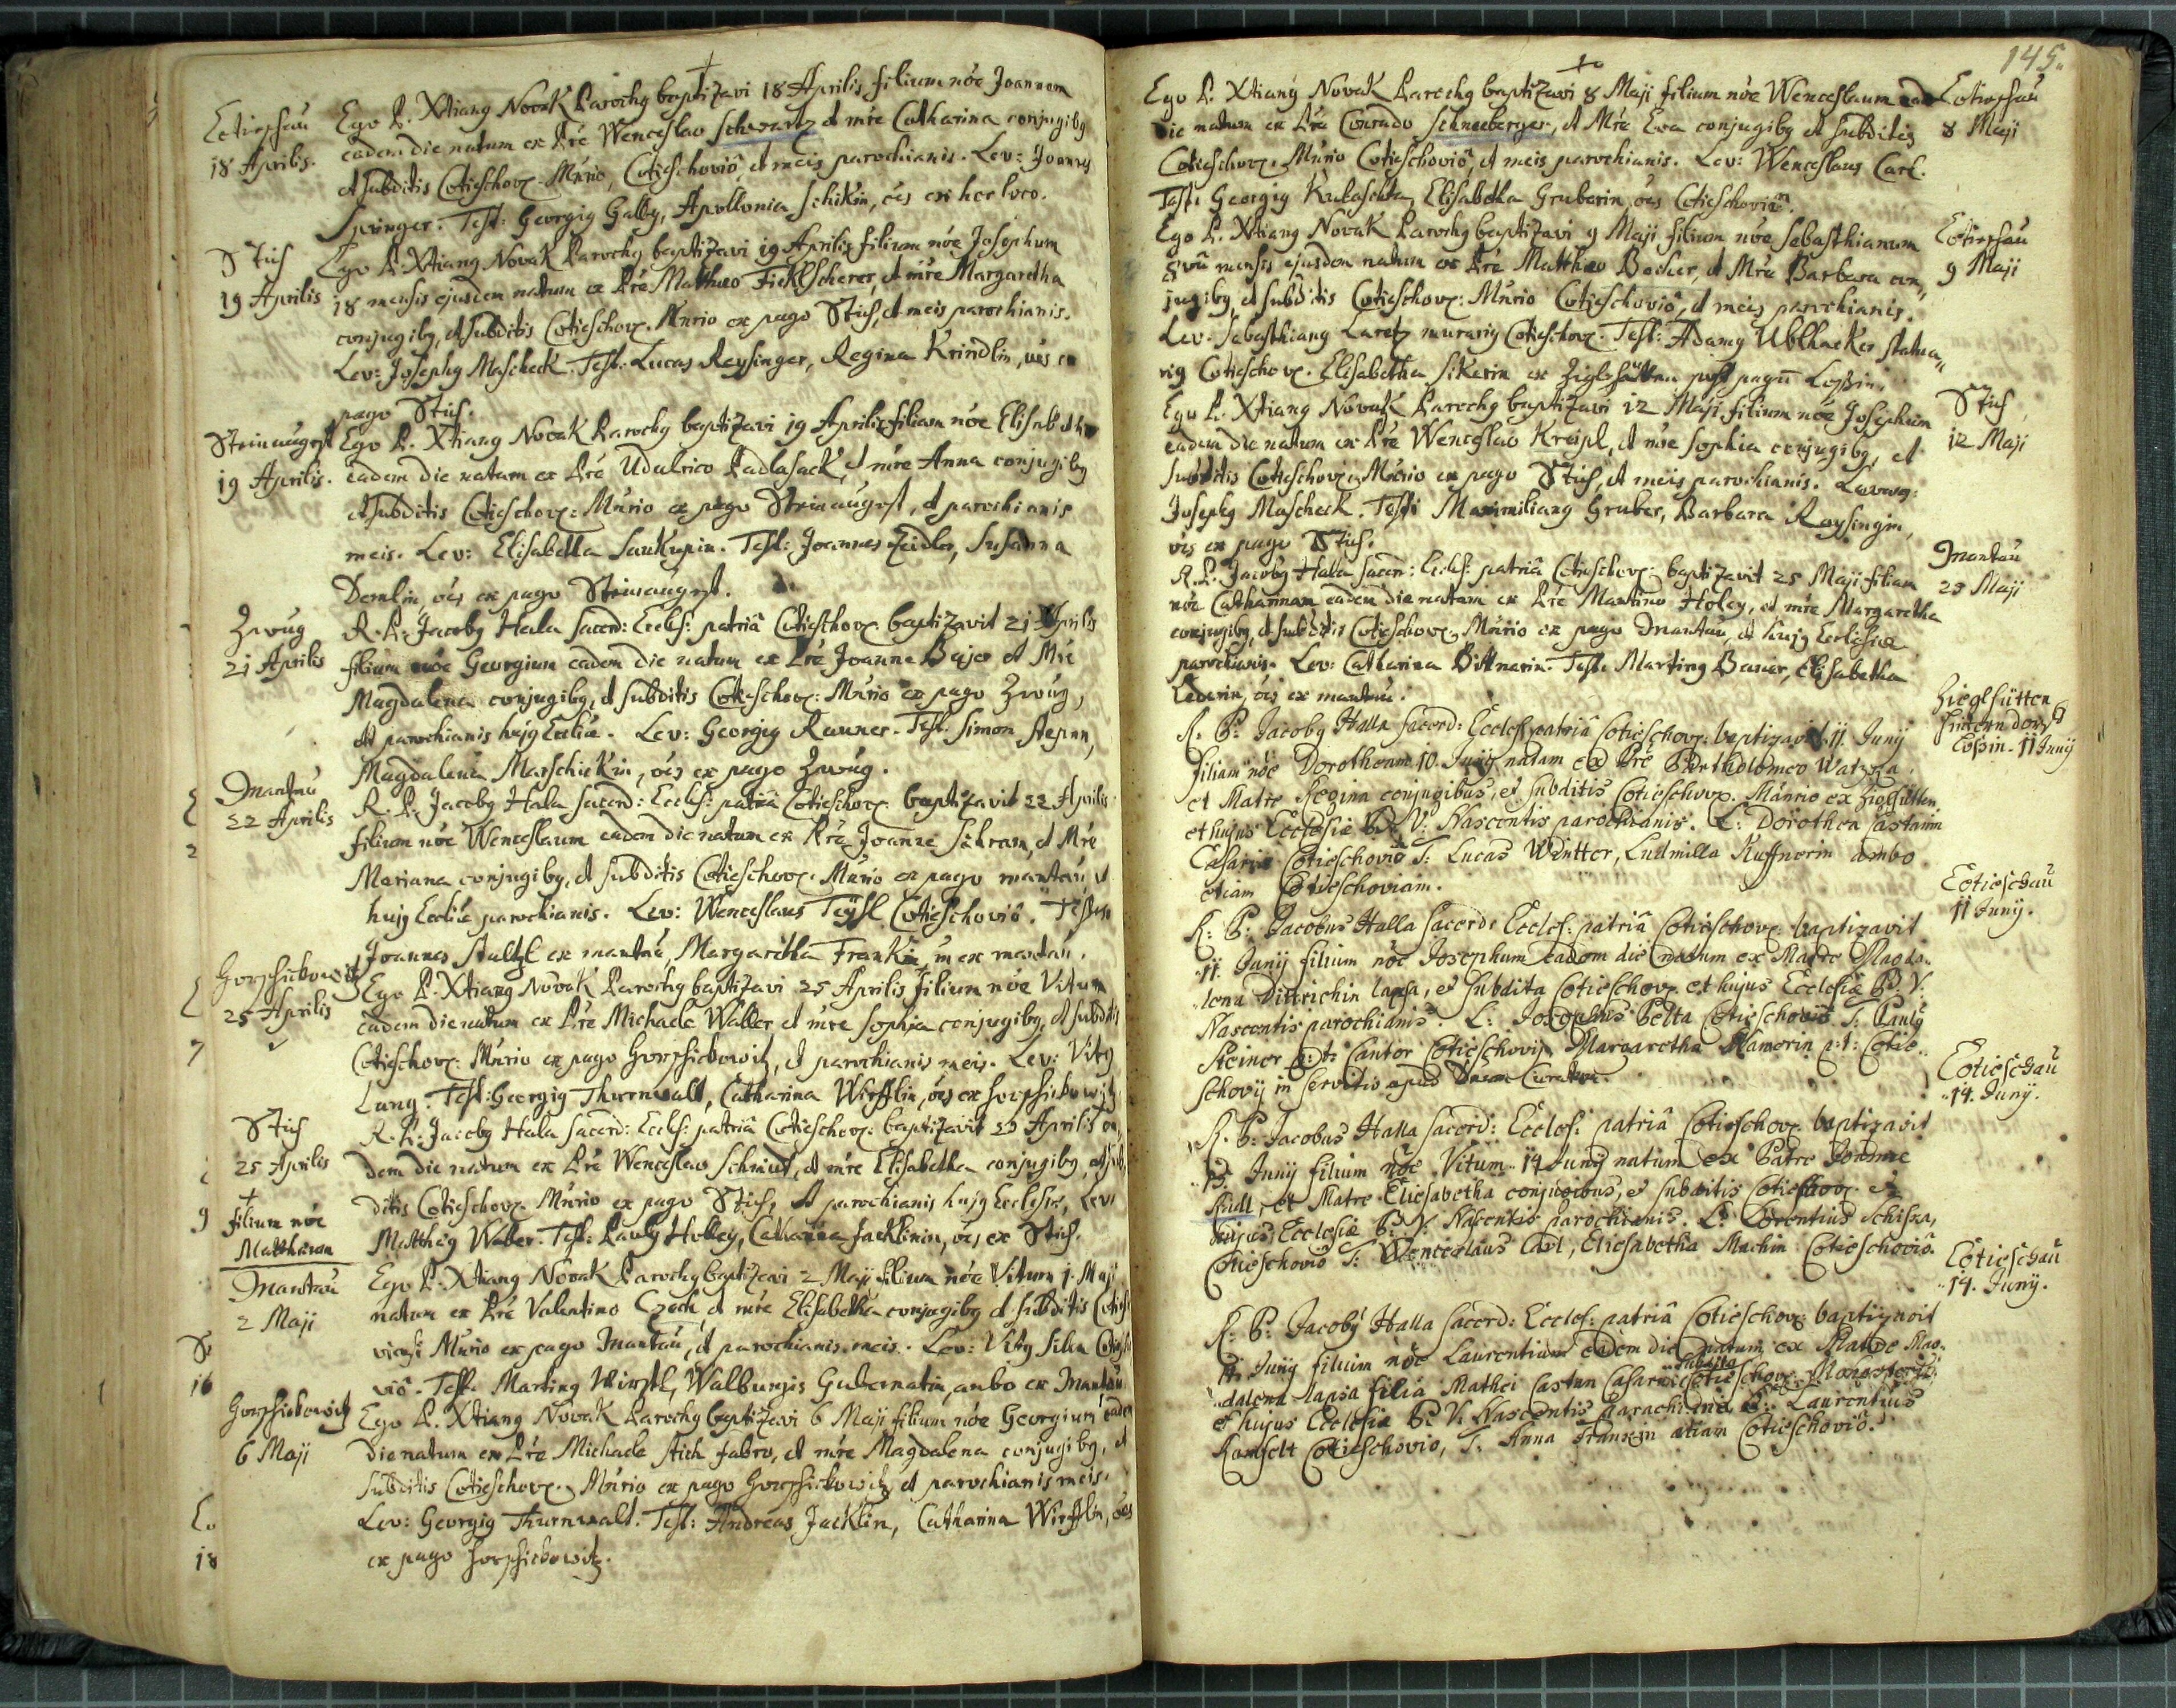 Cotieschau
18 Aprilis.
Ego P. Xtianq Novak Parochq baptizavi 18 Aprilis filium nõe Joannem
eadem die natum ex Pr̃e Wenceslao Schwartz et mr̃e Catharina conjugibq
et subditis Cotieschov: Mñrio, Cotieschoviõ, et meis parochianis. Lev: Joannes
Springer. Test: Georgiq Gally, Apollonia Schikin, oẽs ex hoc loco.
Stich
19 Aprilis
Ego P. Xtianq Novak Parochq baptizavi 19 Aprilis filium nõe Josephum
18 mensis ejusdem natum ex Pr̃e Mattheo Ficklscherer, et mr̃e Margaretha
conjugibq, et subditis Cotieschov. Mñrio ex pago Stich, et meis parochianis.
Lev: Josephq Mascheck. Test: Lucas Reysinger, Regina Krindlin, oẽs ex
pago Stich.
19 Aprilis.
Ego P. Xtianq Novak Parochq baptizavi 19 Aprilis filiam nõe Elisabetha
eadem die natam ex Pr̃e Udalrico Padlasack, et mr̃e Anna conjugibq
et subditis Cotieschov: Mñrio ex pago et parochianis
meis. Lev: Elisabetha Saukupin. Test: Joannes Zeidler, Susanna
Demlin, oẽs ex pago
Zwug
21 Aprilis
R. P. Jacobq Hala Sacerd: Eccls: patriâ Cotieschov. baptizavit 21 Aprilis
filium nõe Georgium eadem die natum ex Pr̃e Joanne Bajer et Mr̃e
Magdalena conjugibq, et subditis Cotieschov: Mñrio ex pago Zwug,
et parochianis hujq Eccliæ. Lev: Georgiq Rauner. Test: Simon Stepan,
Magdalena Marschickin, oẽs ex pago Zwug.
Mantau
22 Aprilis
R. P. Jacobq Hala Sacerd: Eccls: patriâ Cotieschov. baptizavit 22 Aprilis
filium nõe Wenceslaum eadem die natum ex Pr̃e Joanne Schram, et Mr̃e
Mariana conjugibq, et subditis Cotieschov. Mñrio ex pago mantau et
hujq Eccliæ parochianis. Lev: Wenceslaus Teysl Cotieschoviõ. Testes
Joannes Stultzl ex mantau, Margaretha Frankin ex mantau.
Gorschikowitz
25 Aprilis
Ego P. Xtianq Novak Parochq baptizavi 25 Aprilis filium nõe Vitum
eadem die natum ex Pr̃e Michaele Waller et mr̃e Sophia conjugibq, et subditis
Cotieschov: Mñrio ex pago Gorschickowitz, et parochianis meis. Lev: Vitq
Lung. Test: Georgiq Thurnwalt, Catharina Wirfflin, oẽs ex Gorschickowitz
Stich
25 Aprilis
+
filium nõe
Matthæum
R. P. Jacobq Hala Sacerd: Eccls: patriâ Cotieschov: baptizavit 25 Aprilis ea
dem die natum ex Pr̃e Wenceslao Schmidt, et mr̃e Elisabetha conjugibq, et sub
ditis Cotieschov. Mñrio ex pago Stich, et parochianis hujq Ecclesiæ, Lev:
Matthæq Waller. Test: Paulq Holley, Catharina Jacklinin, oẽs ex Stich.
Mantau
2 Maji
Ego P. Xtianq Novak Parochq baptizavi 2 Maji filium nõe Vitum 1. Maji
natum ex Pr̃e Valentino Czech, et mr̃e Elisabetha conjugibq et subditis Cotiescho
viensi Mñrio ex pago Mantau, et parochianis meis. Lev: Vitq Sika Cotiescho
viõ. Test. Martinq Hirschl, Walburgis Gubernatin, ambo ex Mantau
Gorschickowitz
6 Maji
Ego P. Xtianq Novak Parochq baptizavi 6 Maji filium nõe Georgium eadem
die natum ex Pr̃e Michaele Stich fabro, et mr̃e Magdalena conjugibq, et
subditis Cotieschov. Mñrio ex pago Gorschickowitz et parochianis meis.
Lev: Georgiq Thurnwalt. Test: Andreas Jacklin, Catharina Wirfflin, oẽs
ex pago Gorschickowitz.
145.
Ego P. Xtianq Novak Parochq baptizavi 8 Maji filium nõe Wenceslaum eadem
die natum ex Pr̃e Conrado Schneeberger, et Mr̃e Eva conjugibq et subditis
Cotieschov. Mñrio Cotieschoviõ, et meis parochianis. Lev: Wenceslaus Carl.
Test: Georgiq Kulaschka, Elisabetha Gruberin, oẽs Cotieschoviõ.
Cotieschau
8 Maji
Ego P. Xtianq Novak Parochq baptizavi 9 Maji filium nõe Sebasthianum
8va mensis ejusdem natum ex Pr̃e Matthæo Becher, et Mr̃e Barbara con„
jugibq, et subditis Cotieschov: Mñrio Cotieschoviõ, et meis parochianis.
Lev. Sebasthianq Laretz murariq Cotieschov. Test: Adamq Ublhacker statua„
riq Cotieschov. Elisabetha Sikerin ex Zieglhütten post pagũ Losin.
Cotieschau
9 Maji
Ego P. Xtianq Novak Parochq baptizavi 12 Maji filium nõe Josephum
eadem die natum ex Pr̃e Wenceslao Kreipl, et mr̃e Sophia conjugibq, et
subditis Cotieschov. Mñrio ex pago Stich, et meis parochianis. Levans:
Josephq Mascheck. Test: Maximilianq Gruber, Barbara Reysingin,
oẽs ex pago Stich.
Stich
12 Maji
R. P. Jacobq Hala Sacer: Eccls: patriâ Cotieschov. baptizavit 25 Maji filiam
nõe Catharinam eadem die natam ex Pr̃e Martino Holey, et mr̃e Margaretha
conjugibq, et subditis Cotieschov. Mñrio ex pago Mantau, et hujq Ecclesiæ
parochianis. Lev: Catharina Bittnerin. Test. Martinq Bauer, Elisabetha
Lederin, oẽs ex mantau.
Mantau
25 Maji
R. P. Jacobq Halla Sacerd: Eccles: patriâ Cotieschov: baptizavit 11. Junij
filiam nõe Dorotheam 10. Junij natam ex Pr̃e Bartholomeo Watzka
et Matre Regina conjugibus, et subditis Cotieschov. Mãnrio ex Zieglhütten
et hujus Ecclesiæ B. V. Nascentis parochianis. L: Dorothea Castanin
Cæsaris Cotieschoviõ T: Lucas Wintter, Ludmilla Kuffnerin ambo
etiam Cotieschoviam.
Zieglhütten
hintern dorf
Losin. 11 Junij
R: P: Jacobus Halla Sacerd: Eccles: patriâ Cotieschov: baptizavit
11. Junij filium nõe Josephum eadem die natum ex Matre Magda„
lena Dittrichin lapsa, et subdita Cotieschov. et hujus Ecclesiæ B. V.
Nascentis parochianis. L: Josephus Pelta Cotieschoviõ T: Paulq
Steiner p: t: Cantor Cotieschovij, Margaretha Hamerin p: t: Cotie„
schovij in servitio apud
Cotieschau
11 Junij.
R. P: Jacobus Halla Sacerd: Eccles: patriâ Cotieschov. baptizavit
15. Junij filium nõe Vitum 14 Junij natum ex Patre Joanne
et Matre Eliesabetha conjugibus, et subditis Cotieschov. et
hujus Ecclesiæ B. V. Nascentis parochianis. L: Lorentius Schiska,
Cotieschoviõ T: Wenceslaus Carl, Eliesabetha Machin Cotieschoviõ.
Cotieschau
14. Junij.
R: P: Jacobq Halla Sacerd: Eccles: patriâ Cotieschov: baptizavit
14. Junij filium nõe Laurentium eadem die natum ex Matre Mag„
dalena lapsa filia Mathei Castan Cæsaris subdita Cotieschov: Monasterij
et hujus Ecclesiæ B: V: Nascentis parochiana L: Laurentius
Ramselt Cotieschovio, T: Anna Frankin etiam Cotieschoviõ.
Cotieschau
14. Junij.